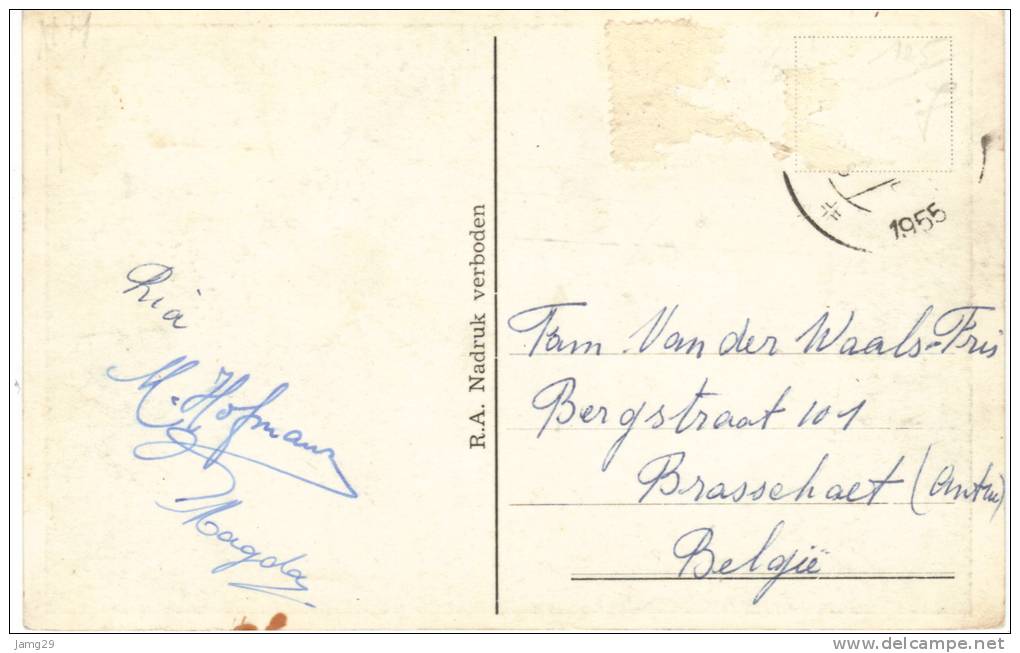 Ria
M. Hofmann
Magda
R.A. Nadruk verboden
125
1955
Fam Van der Waals-Fris
Bergstraat 101
Brasschaet (Antw)
België
jamg29
www.delcampe.net